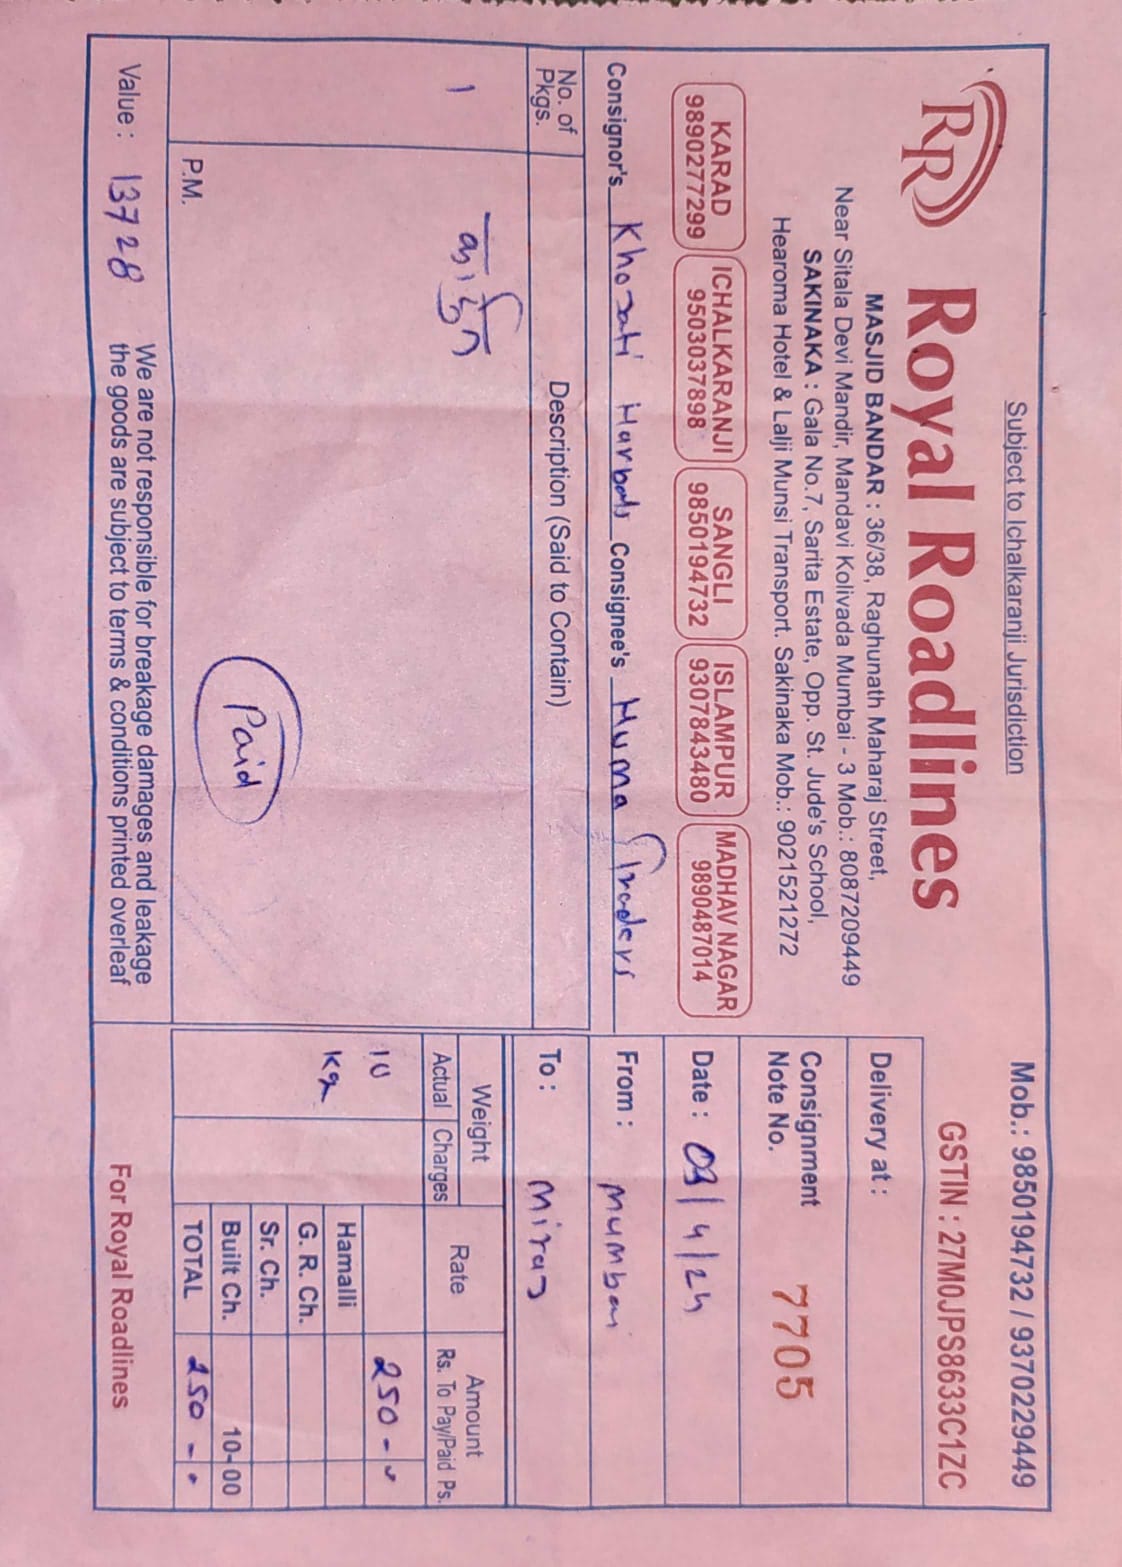 Subject to Ichalkaranji Jurisdiction
Mob.: 9850194732 / 9370229449
RR Royal Roadlines
GSTIN : 27M0JPS8633C1ZC
MASJID BANDAR : 36/38, Raghunath Maharaj Street,
Near Sitala Devi Mandir, Mandavi Kolivada Mumbai - 3 Mob.: 8087209449
SAKINAKA : Gala No.7, Sarita Estate, Opp. St. Jude's School,
Hearoma Hotel & Lalji Munsi Transport. Sakinaka Mob.: 9021521272
KARAD
9890277299
ICHALKARANJI
9503037898
SANGLI
9850194732
ISLAMPUR
9307843480
MADHAV NAGAR
9890487014
Delivery at :
Consignment
Note No.
7705
Date : 03/4/25
Consignor's Khojati Harbals Consignee's Huma Traders
From : Mumbai
To : Miraj
No. of
Pkgs.
Description (Said to Contain)
Weight
Actual
Charges
Rate
Amount
Rs. To Pay/Paid Ps.
1
10
Kg
250 - -
Hamalli
G. R. Ch.
Sr. Ch.
Built Ch. 10-00
TOTAL 250 - -
Paid
P.M.
Value : 13728
We are not responsible for breakage damages and leakage
the goods are subject to terms & conditions printed overleaf
For Royal Roadlines